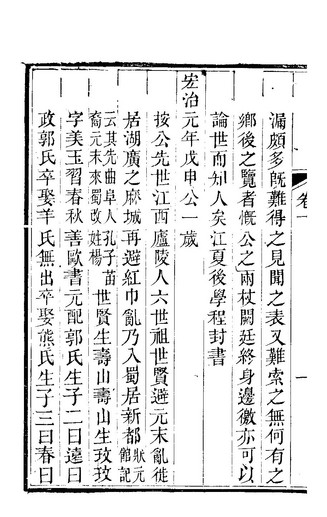 卷一
一
漏頗多旣難得之見聞之表又難索之無何有之
鄉後之覽者慨公之兩杖闕廷終身邊徼亦可以
論世而知人矣江夏後學程封書
宏治元年戊申公一歲
按公先世江西廬陵人六世祖世賢避元末亂徙
居湖廣之麻城再避紅巾亂乃入蜀居新都狀元館記
云其先曲阜人孔子苗裔元末來蜀改姓楊世賢生壽山壽山生玫玫
字美玉習春秋善歐書元配郭氏生子二曰遠曰
政郭氏卒娶羊氏無出卒娶熊氏生子三曰春曰